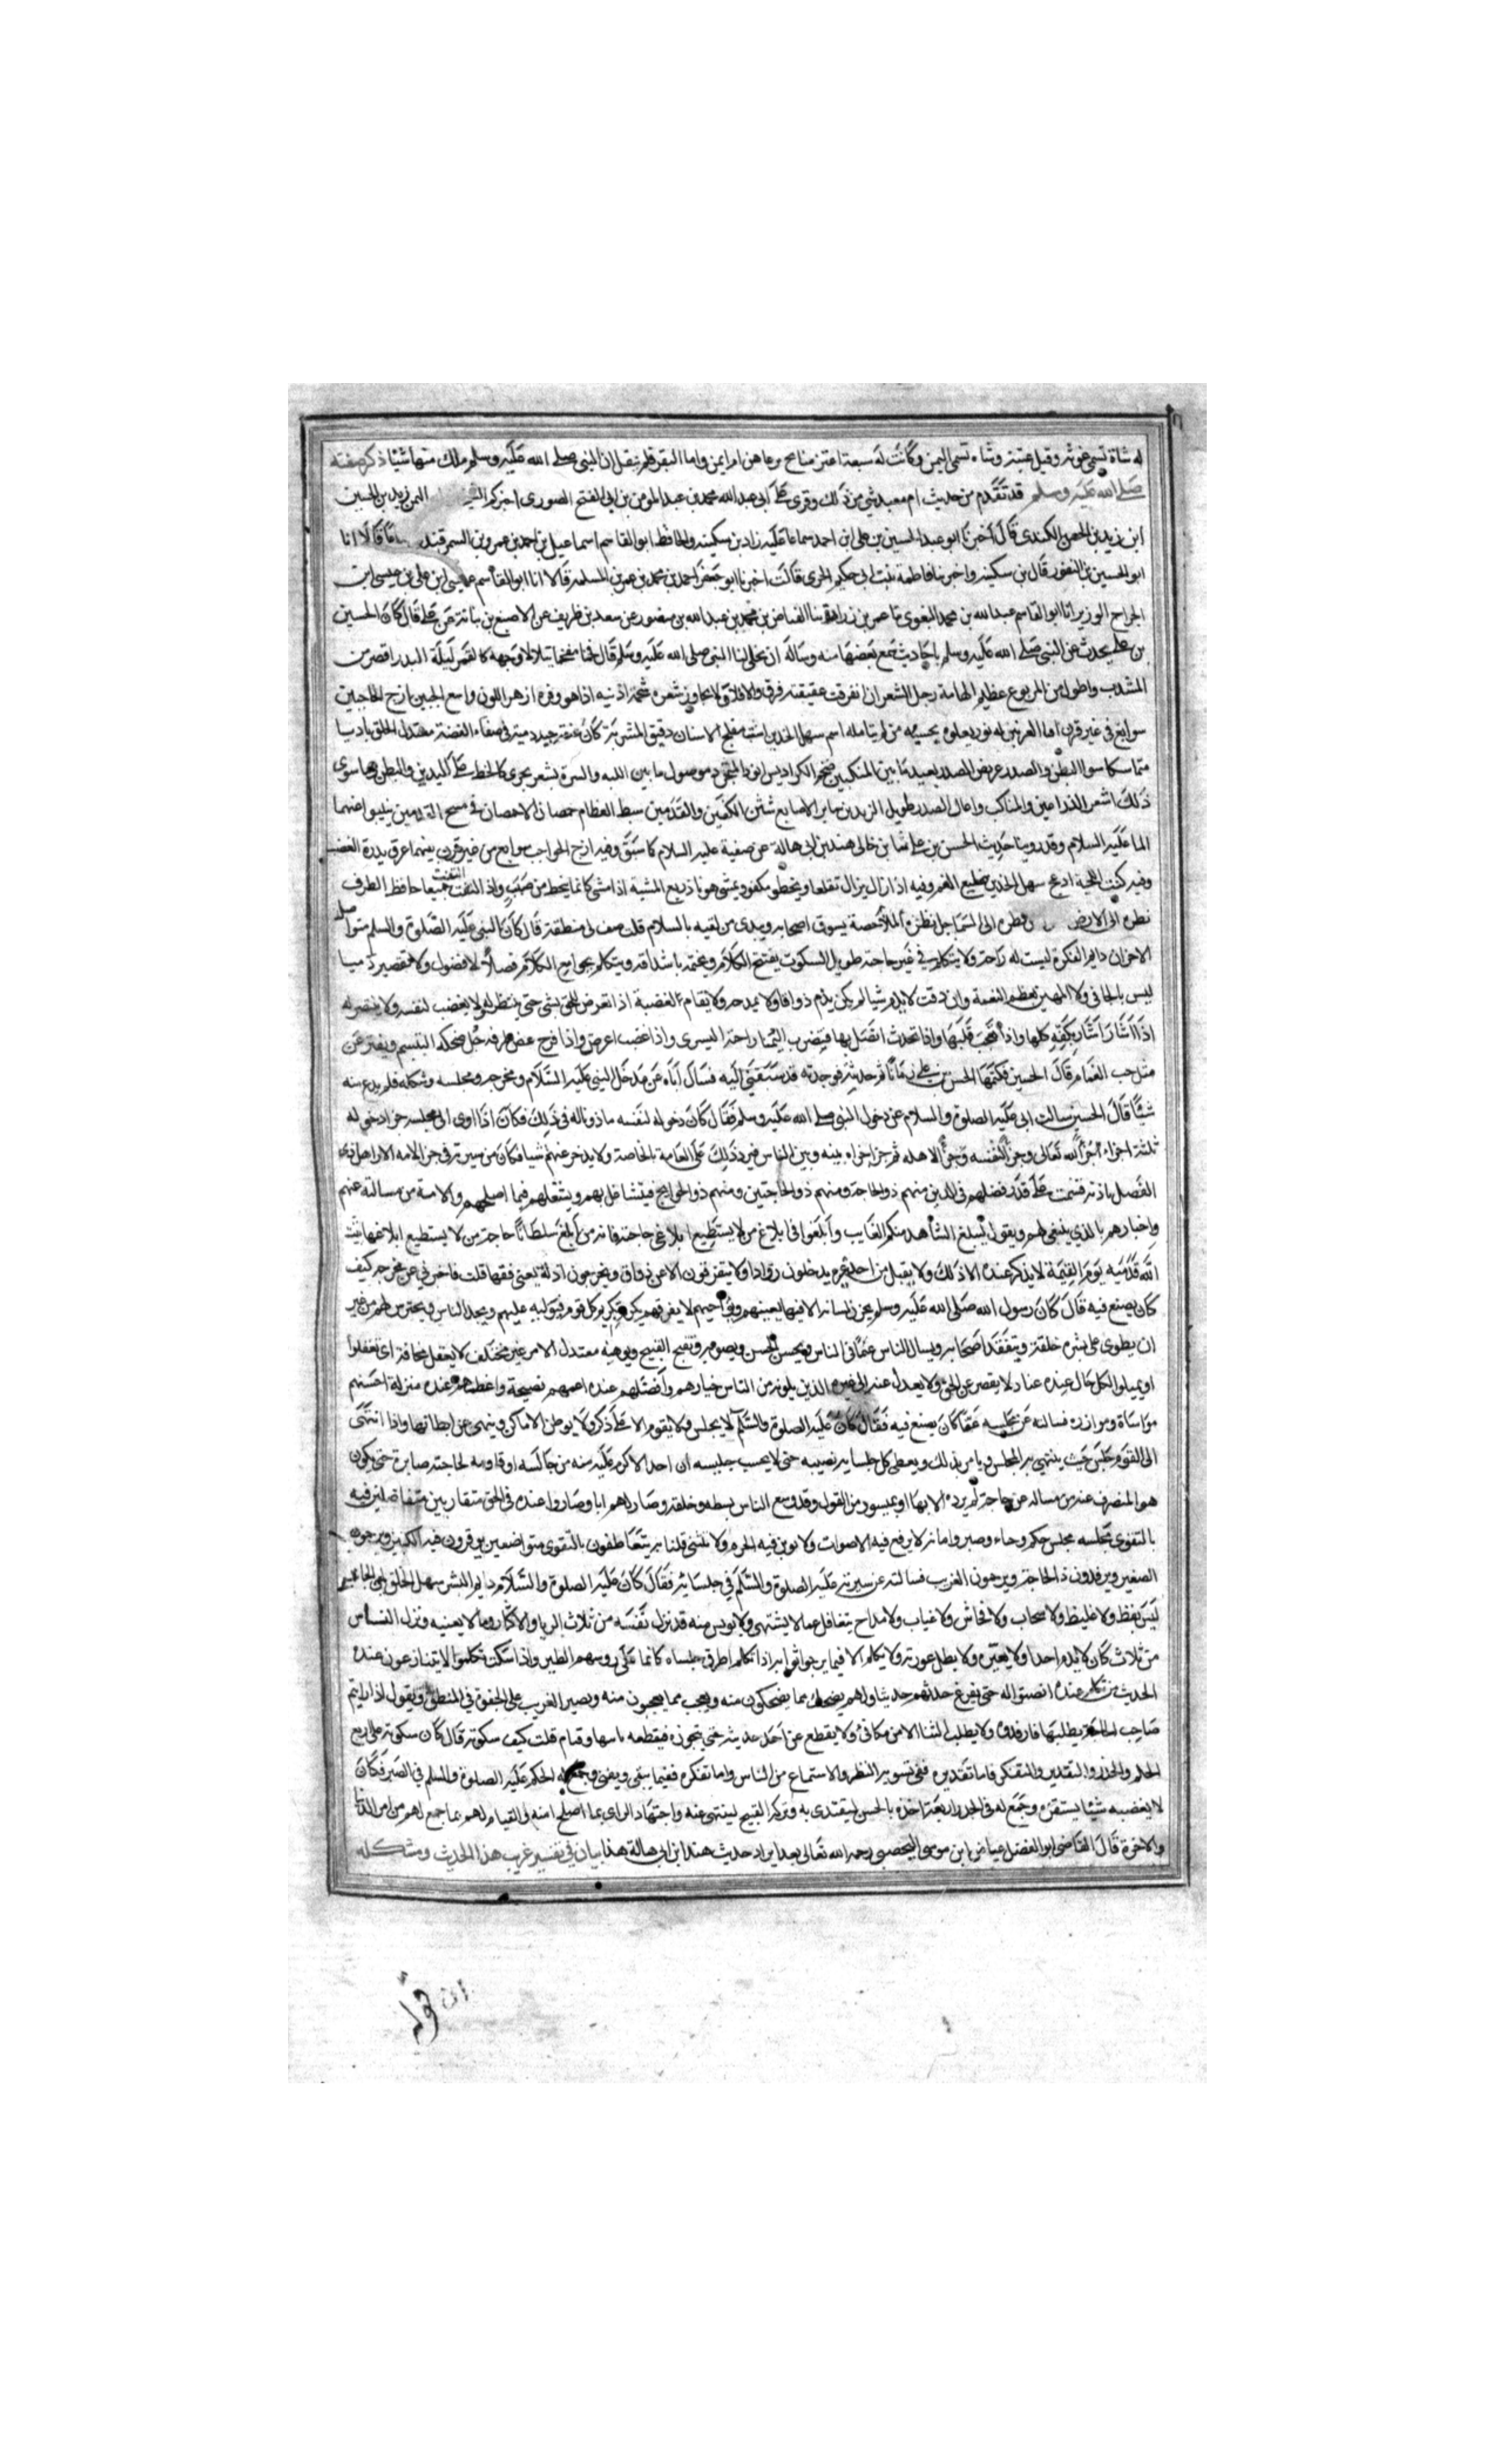 له شاة تسمى غوثه وقيل غيثة وشاه تسمى اليمن وكانت له سبعة اعنز منايح يرعاهن ام ايمن واما البقر فلم ينقل ان النبي صلى الله عليه وسلم ملك منها شيئا ذكر صفته
صلى الله عليه وسلم قد تقدم من حديث ام معبد شي من ذلك وقرى على ابى عبد الله محمد بن عبد المومن بن ابى الفتح الصورى اخبركم اليمن زيد بن الحسن
ابن زيد بن الحسن الكندى قال اخبرنا ابو عبد الحسين بن على ابن احمد سماعا عليه زاد بن سكينه والحافظ ابو القاسم اسماعيل بن احمد بن عمرو بن السمرقند قالا انا
ابو الحسين بن النقور قال بن سكينه واخبرنا فاطمة بنت ابى حكيم الخرى قالت اخبرنا ابو جعفر احمد بن محمد بن عمر بن المسلمة قالا انا ابو القاسم عيسى ابن على بن عيسى ابن
الجراح الوزير انا ابو القاسم عبد الله بن محمد البغوى نا عمر بن زرارة نا الفياض بن محمد بن عبد الله بن منصور عن سعد بن ظريف عن الاصبغ بن نباتة عن على قال كان الحسين
بن على يحدث عن النبي صلى الله عليه وسلم باحاديث سمع بعضها منه وساله ان يحلى لنا النبي صلى الله عليه وسلم قال فخما مفخما يتلالا وجهه كالقمر ليلة البدر اقصر من
المشذب واطول من المربوع عظيم الهامة رجل الشعر ان انفرقت عقيقته فرق والا فلا يجاوز شعره شحمة اذنيه اذا هو وفره ازهر اللون واسع الجبين ازج الحاجبين
سوابغ فى غير قرن اقنا العرنين له نور يعلوه يحسبه من لم يتامله اشم سهل الخدين اشنب مفلج الاسنان دقيق المشربة كان عنقه جيد دمية فى صفاء الفضة معتدل الخلق بادنا
متماسكا سوا البطن والصدر عريض الصدر بعيد ما بين المنكبين ضخم الكراديس انور المتجرد موصول ما بين اللبه والسرة بشعر يجرى كالخط عارى الثديين والبطن مما سوى
ذلك اشعر الذراعين والمناكب واعالى الصدر طويل الزندين سايل الاصابع شثن الكفين والقدمين سبط العظام خمصان الاخمصان فى مسيح القدمين ينبوا عنهما
الما عليه السلام وقد روينا حديث الحسن بن على سالت خالى هند بن ابى هالة عن صفية عليه السلام كما سبق وفيه ازج الحواجب سوابغ من غير قرن بينهما عرق يدره الغضب
وفيه كث اللحية ادعج سهل الخدين ضليع الفم وفيه اذا زال يزال تقلعا ويخطو تكفوا ويمشى هونا ذريع المشية اذا مشى كانما ينحط من صبب واذ التفت التفت جميعا حافظ الطرف
نظره الى الارض اطول من نظره الى السماجل نظره الملاحصة يسوق اصحابه ويبدى من لقيه بالسلام قلت صف لى منطقه قال كان النبى عليه الصلوة والسلم متواصل
الاحزان دايم الفكرة ليست له راحة ولا يتكلم فى غير حاجة طويل السكوت يفتتح الكلام ويختمه باشداقه ويتكلم بجوامع الكلام فصلا لا فضول ولا تقصير دميسا
ليس بالجافى ولا المهين يعظم النعمة وان دقت لا يذم شيا لم يكن يذم ذواقا ولا يمدحه ولا يقام لغضبة اذا تعرض للحق بشى حتى ينتصر له ولا يغضب لنفسه ولا ينتصر له
اذا اشار اشار بكفه كلها واذا تعجب قلبها واذا تحدث اتصل بها فيضرب اليمنا راحة اليسرى واذا غضب اعرض واذا فرح غض طرفه جل ضحكه التبسم ويفتر عن
مثل حب الغمام قال الحسين فكتمها الحسن بن على زمانا ثم حدثته فوجدته قد سبقنى اليه فسال اباه عن مدخل النبى عليه السلام ومخرجه ومجلسه وشكله فلم يدع منه
شيئا قال الحسين سالت ابى عليه الصلوة والسلام عن دخول النبى صلى الله عليه وسلم فقال كان دخوله لنفسه ماذونا له فى ذلك فكان اذا اوى الى مجلسه جزا دخوله
ثلثة اجزاء جزا لله تعالى وجزا لنفسه وجزا لاهله ثم جزا جزاه بينه وبين الناس فيرد ذلك على العامة بالخاصة ولا يدخر عنهم شيا فكان من سيرته فى جزا الامه الا اهل ذى
الفضل باذنه قسمت على قدر فضلهم فى الدين منهم ذو الحاجة ومنهم ذو الحاجتين ومنهم ذو الحوايج فيتشاغل بهم ويشغلهم فيما اصلحهم والامة من مسالته عنهم
واخبارهم بالذي ينبغى لهم ويقول ليبلغ الشاهد منكم الغايب وابلغوا فى ابلاغ من لا يستطيع ابلاغى حاجته فانه من ابلغ سلطانا حاجة من لا يستطيع ابلاغها ثبت
الله قدميه يوم القيمة لا يذكر عنده الا ذلك ولا يقبل من احد غيره يدخلون روادا ولا يتفرقون الا عن ذواق ويخرجون ادلة يعنى فقها قلت فاخبرنى عن مخرجه كيف
كان يصنع فيه قال كان رسول الله صلى الله عليه وسلم يخزن لسانه الا فيما يعينهم ويولفهم لا يفرقهم يكرم كريم كل قوم ويوليه عليهم ويحذر الناس ويحترس منهم من غير
ان يطوى على بشره وخلقه ويتفقد اصحابه ويسال الناس عما فى الناس ويحسن الحسن ويصوبه ويقبح القبيح ويوهنه معتدل الامر غير مختلف لا يغفل مخافة ان يغفلوا
او يميلوا لكل حال عنده عناد لا يقصر عن الحق ولا يعدل عنه الى غيره الذين يلونه من الناس خيارهم وافضلهم عنده اعمهم نصيحة واعظمهم عنده منزلة احسنهم
مواساة وموازرة فسالته عن مجلسه عما كان يصنع فيه فقال كان عليه الصلوة والسلم لا يجلس ولا يقوم الا على ذكر ولا يوطن الاماكن وينهى عن ايطانها واذا انتهى
الى القوم جلس حيث ينتهى به المجلس ويامر بذلك ويعطى كل جلسايه نصيبه حتى لا يحسب جليسه ان احدا لاكرم عليه منه من جالسه او قاومه لحاجته صابره حتى يكون
هو المنصرف عنه من ساله عن حاجة لم يرده الا بها او بميسور من القول وقد وسع الناس بسطه وخلقه وصار لهم ابا وصاروا عنده فى الحق متقاربين متفاضلين فيه
بالتقوى مجلسه مجلس حكم وحاء وصبر وامانه لا يرفع فيه الاصوات ولا توبن فيه الحرم ولا تنثى فلتاته يتعاطفون بالتقوى متواضعين يوقرون فيه الكبير ويرحون
الصغير ويرفدون ذا الحاجة ويرحمون الغريب فسالته عن سيرته عليه الصلوة والسلم فى جلسايه فقال كان عليه الصلوة والسلام دايم البشر سهل الخلق لين الجانب
ليس بفظ ولا غليظ ولا سخاب ولا فحاش ولا غياب ولا مداح يتغافل عما لا يشتهى ولا يويس منه قد نزل نفسه من ثلاث الريا والاكثار وما لا يعنيه ونزل الناس
من ثلاث كان لا يذم احدا ولا يعيره ولا يطلب عورته ولا يكلم الا فيما يرجوا ثوابه اذا تكلم اطرق جلساه كانما على روسهم الطير واذا سكت تكلموا لا يتنازعون عنده
الحديث من تكلم عنده انصتوا له حتى يفرغ حديثهم حديث اولهم يضحك مما يضحكون منه ويعجب مما يعجبون منه ويصبر الغريب على الجفوة فى المنطق ويقول اذا رايتم
صاحب الحاجة يطلبها فارفدوه ولا يطلب الثنا الا من مكافئ ولا يقطع عن احد حديثه حتى يتجوزه فيقطعه بانتها وقيام قلت كيف سكوته قال كان سكوته على اربع
الحلم والحذر والتقدير والتفكر فاما تقديره ففى تسويه النظر والاستماع من الناس واما تفكره ففيما يبقى ويفنى وجمع له الحكم عليه الصلوة والسلم فى الصبر فكان
لا يغضبه شيئا يستفزه وجمع له فى الحذر اربعة اخذه بالحسن ليقتدى به وتركه القبيح لينتهى عنه واجتهاد الراى بما اصلح امته والقيام لهم بما جمع لهم من امر الدنيا
والاخرة قال القاضى ابو الفضل عياض ابن موسى اليحصبى رحمه الله تعالى بعد ايراد حديث هند ابن ابى هالة هذا بيان فى تفسير غريب هذا الحديث ومشكله
قوله